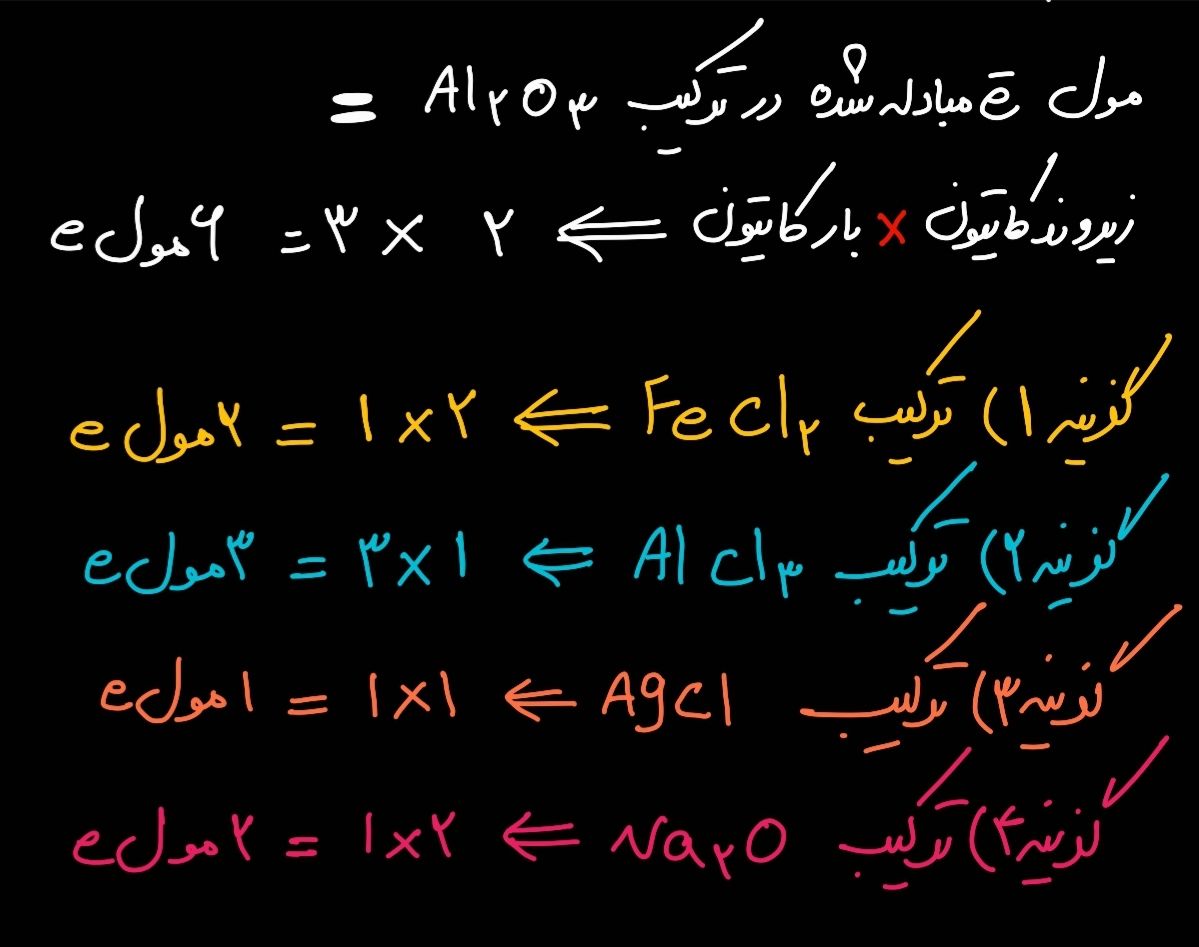 مول e̅ مبادله شده در ترکیب Al۲O۳ =
زیروند کاتیون × بار کاتیون ⇐ ۲ × ۳ = ۶ مول e
گزینه ۱) ترکیب FeCl۲ ⇐ ۱ × ۲ = ۲ مول e
گزینه ۲) ترکیب AlCl۳ ⇐ ۳ × ۱ = ۳ مول e
گزینه ۳) ترکیب AgCl ⇐ ۱ × ۱ = ۱ مول e
گزینه ۴) ترکیب Na۲O ⇐ ۱ × ۲ = ۲ مول e